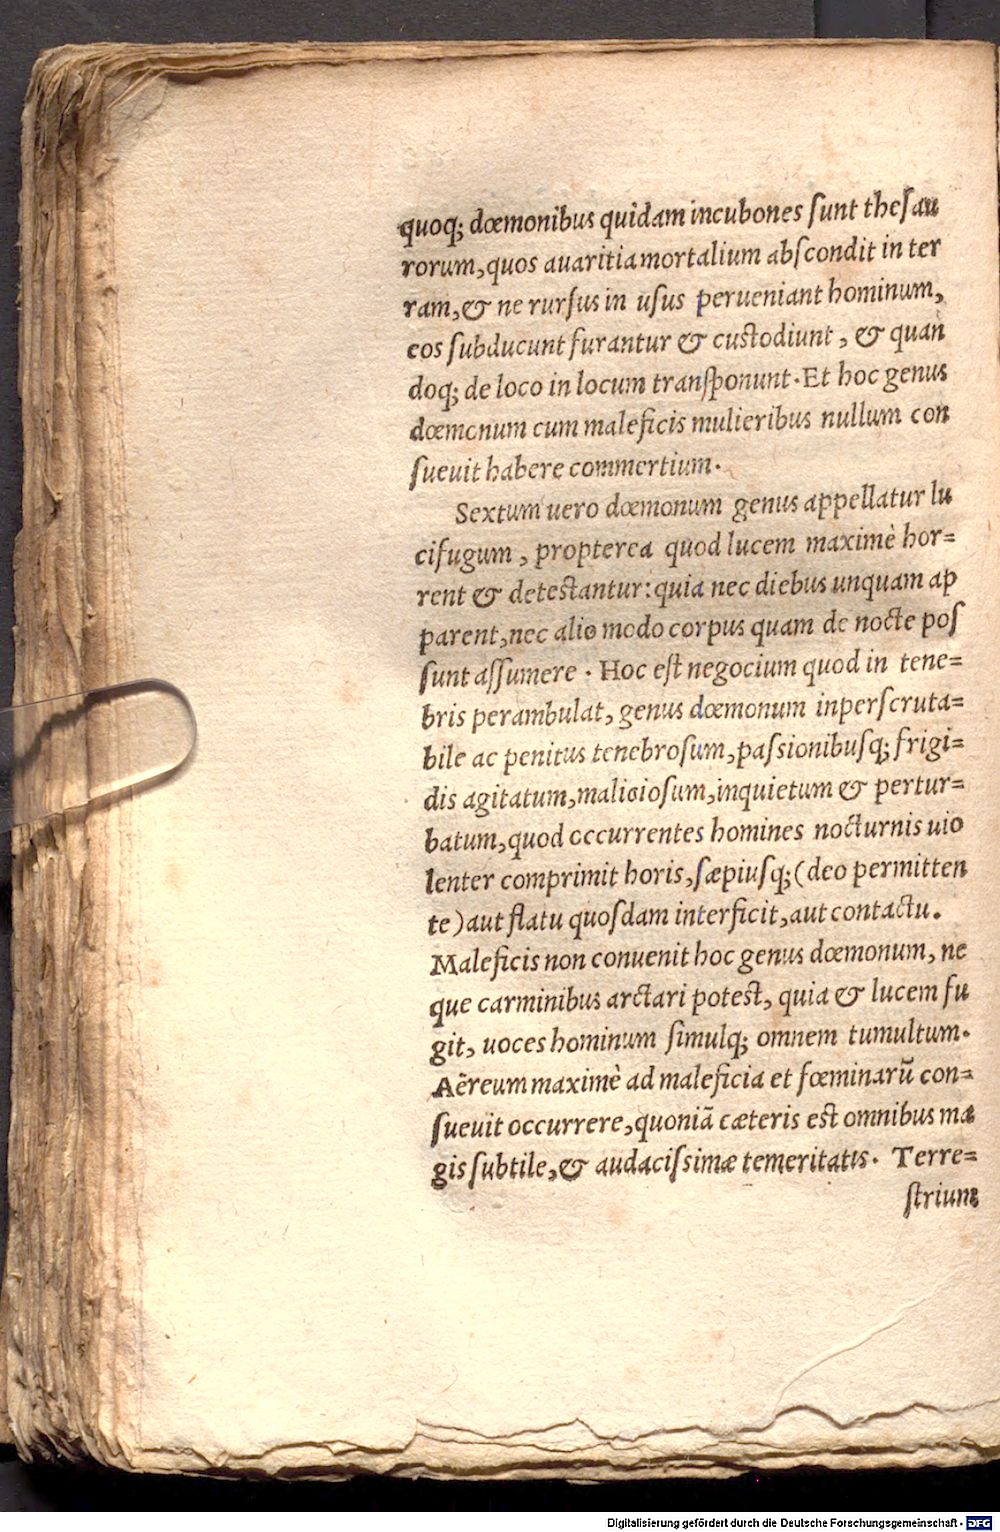 quoq; dœmonibus quidam incubones ſunt theſau
rorum,quos auaritia mortalium abſcondit in ter
ram,& ne rurſus in uſus perueniant hominum,
eos ſubducunt furantur & cuſtodiunt , & quan
doq; de loco in locum tranſponunt.Et hoc genus
dœmonum cum maleficis mulieribus nullum con
ſueuit habere commertium.
Sextum uero dœmonum genus appellatur lu
cifugum , propterea quod lucem maximè hor=
rent & deteſtantur:quia nec diebus unquam ap
parent,nec alio modo corpus quam de nocte poſ
ſunt aſſumere . Hoc eſt negocium quod in tene=
bris perambulat, genus dœmonum inperſcruta=
bile ac penitus tenebroſum,paſsionibuſq; frigi=
dis agitatum,malicioſum,inquietum & pertur=
batum,quod occurrentes homines nocturnis uio
lenter comprimit horis,ſæpiuſq;(deo permitten
te)aut flatu quoſdam interficit,aut contactu.
Maleficis non conuenit hoc genus dœmonum, ne
que carminibus arctari poteſt, quia & lucem fu
git, uoces hominum ſimulq; omnem tumultum.
Aëreum maximè ad maleficia et fœminarū con=
ſueuit occurrere,quoniā cæteris eſt omnibus ma
gis ſubtile,& audaciſsimæ temeritatis. Terre=
ſtrium
Digitalisierung gefördert durch die Deutsche Forschungsgemeinschaft - DFG